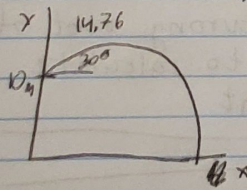 y 14,76
30°
10m
x